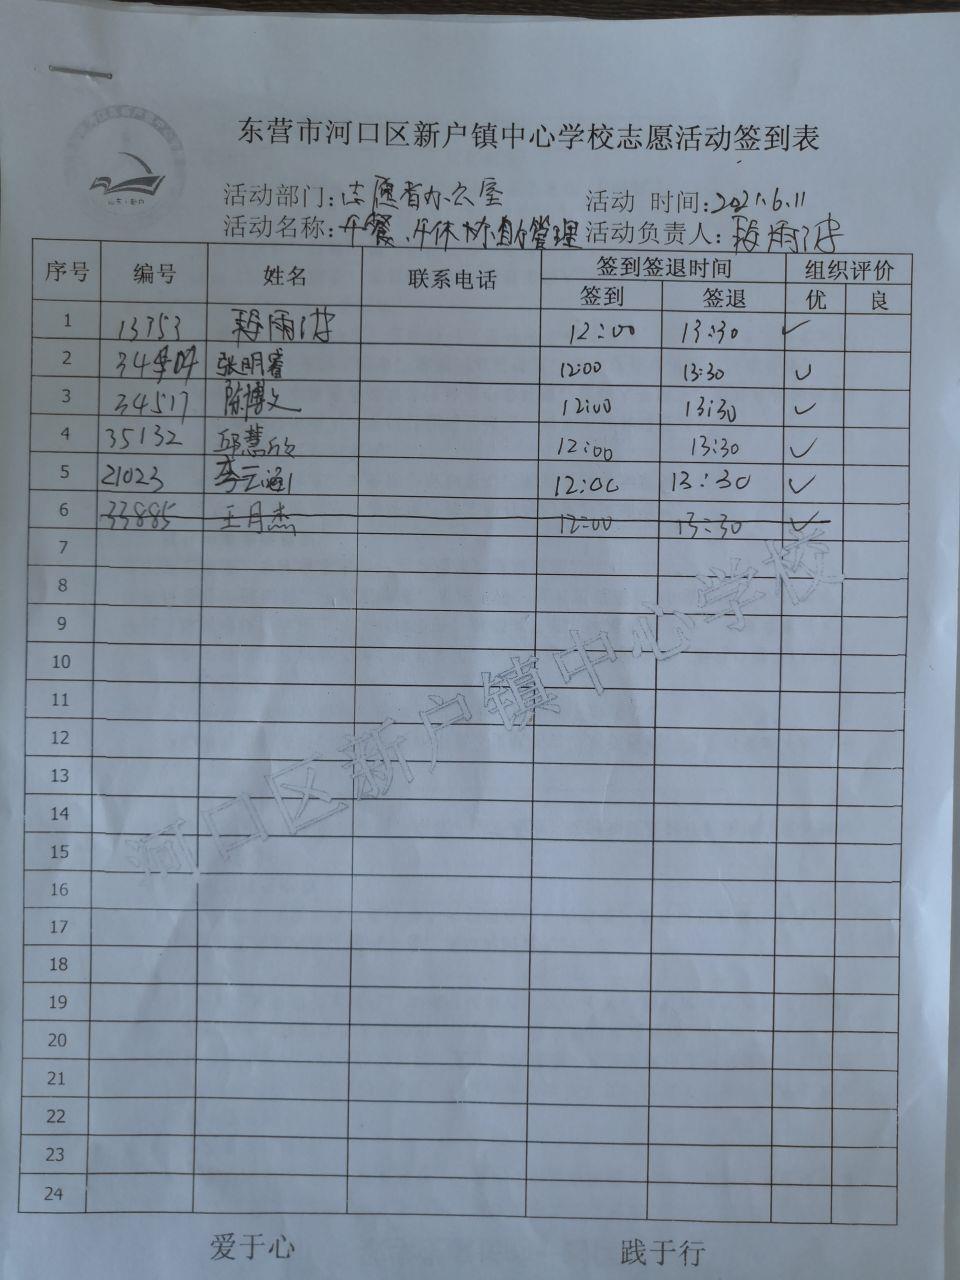 东营市河口区新户镇中心学校志愿活动签到表
活动部门:志愿者办公室 活动 时间:2021.6.11
活动名称:午餐、午休协助管理 活动负责人:雨
序号 编号 姓名 联系电话 签到签退时间 组织评价
签到 签退 优 良
1 13753 雨 12:00 13:30 ✓
2 张明睿 12:00 13:30 ✓
3 34517 陈博文 12:00 13:30 ✓
4 35132 邱慧欣 12:00 13:30 ✓
5 21023 李云涵 12:00 13:30 ✓
6 33885 王月杰 12:00 13:30 ✓
7
8
9
10
11
12
13
14
15
16
17
18
19
20
21
22
23
24
河口区新户镇中心学校
爱于心 践于行